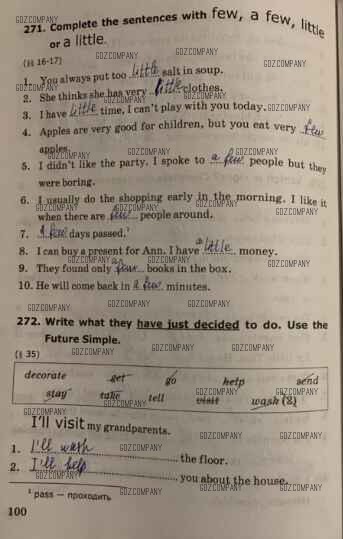 271. Complete the sentences with few, a few, little
or a little.
(§§ 16-17)
1. You always put too little salt in soup.
2. She thinks she has very little clothes.
3. I have little time, I can't play with you today.
4. Apples are very good for children, but you eat very few
apples.
5. I didn't like the party. I spoke to a few people but they
were boring.
6. I usually do the shopping early in the morning. I like it
when there are few people around.
7. A few days passed.¹
8. I can buy a present for Ann. I have a little money.
9. They found only a few books in the box.
10. He will come back in a few minutes.
272. Write what they have just decided to do. Use the
Future Simple.
(§ 35)
decorate get go help send
stay take tell visit wash (2)
I'll visit my grandparents.
1. I'll wash the floor.
2. I'll help you about the house.
¹ pass — проходить
100
GDZ.COMPANY